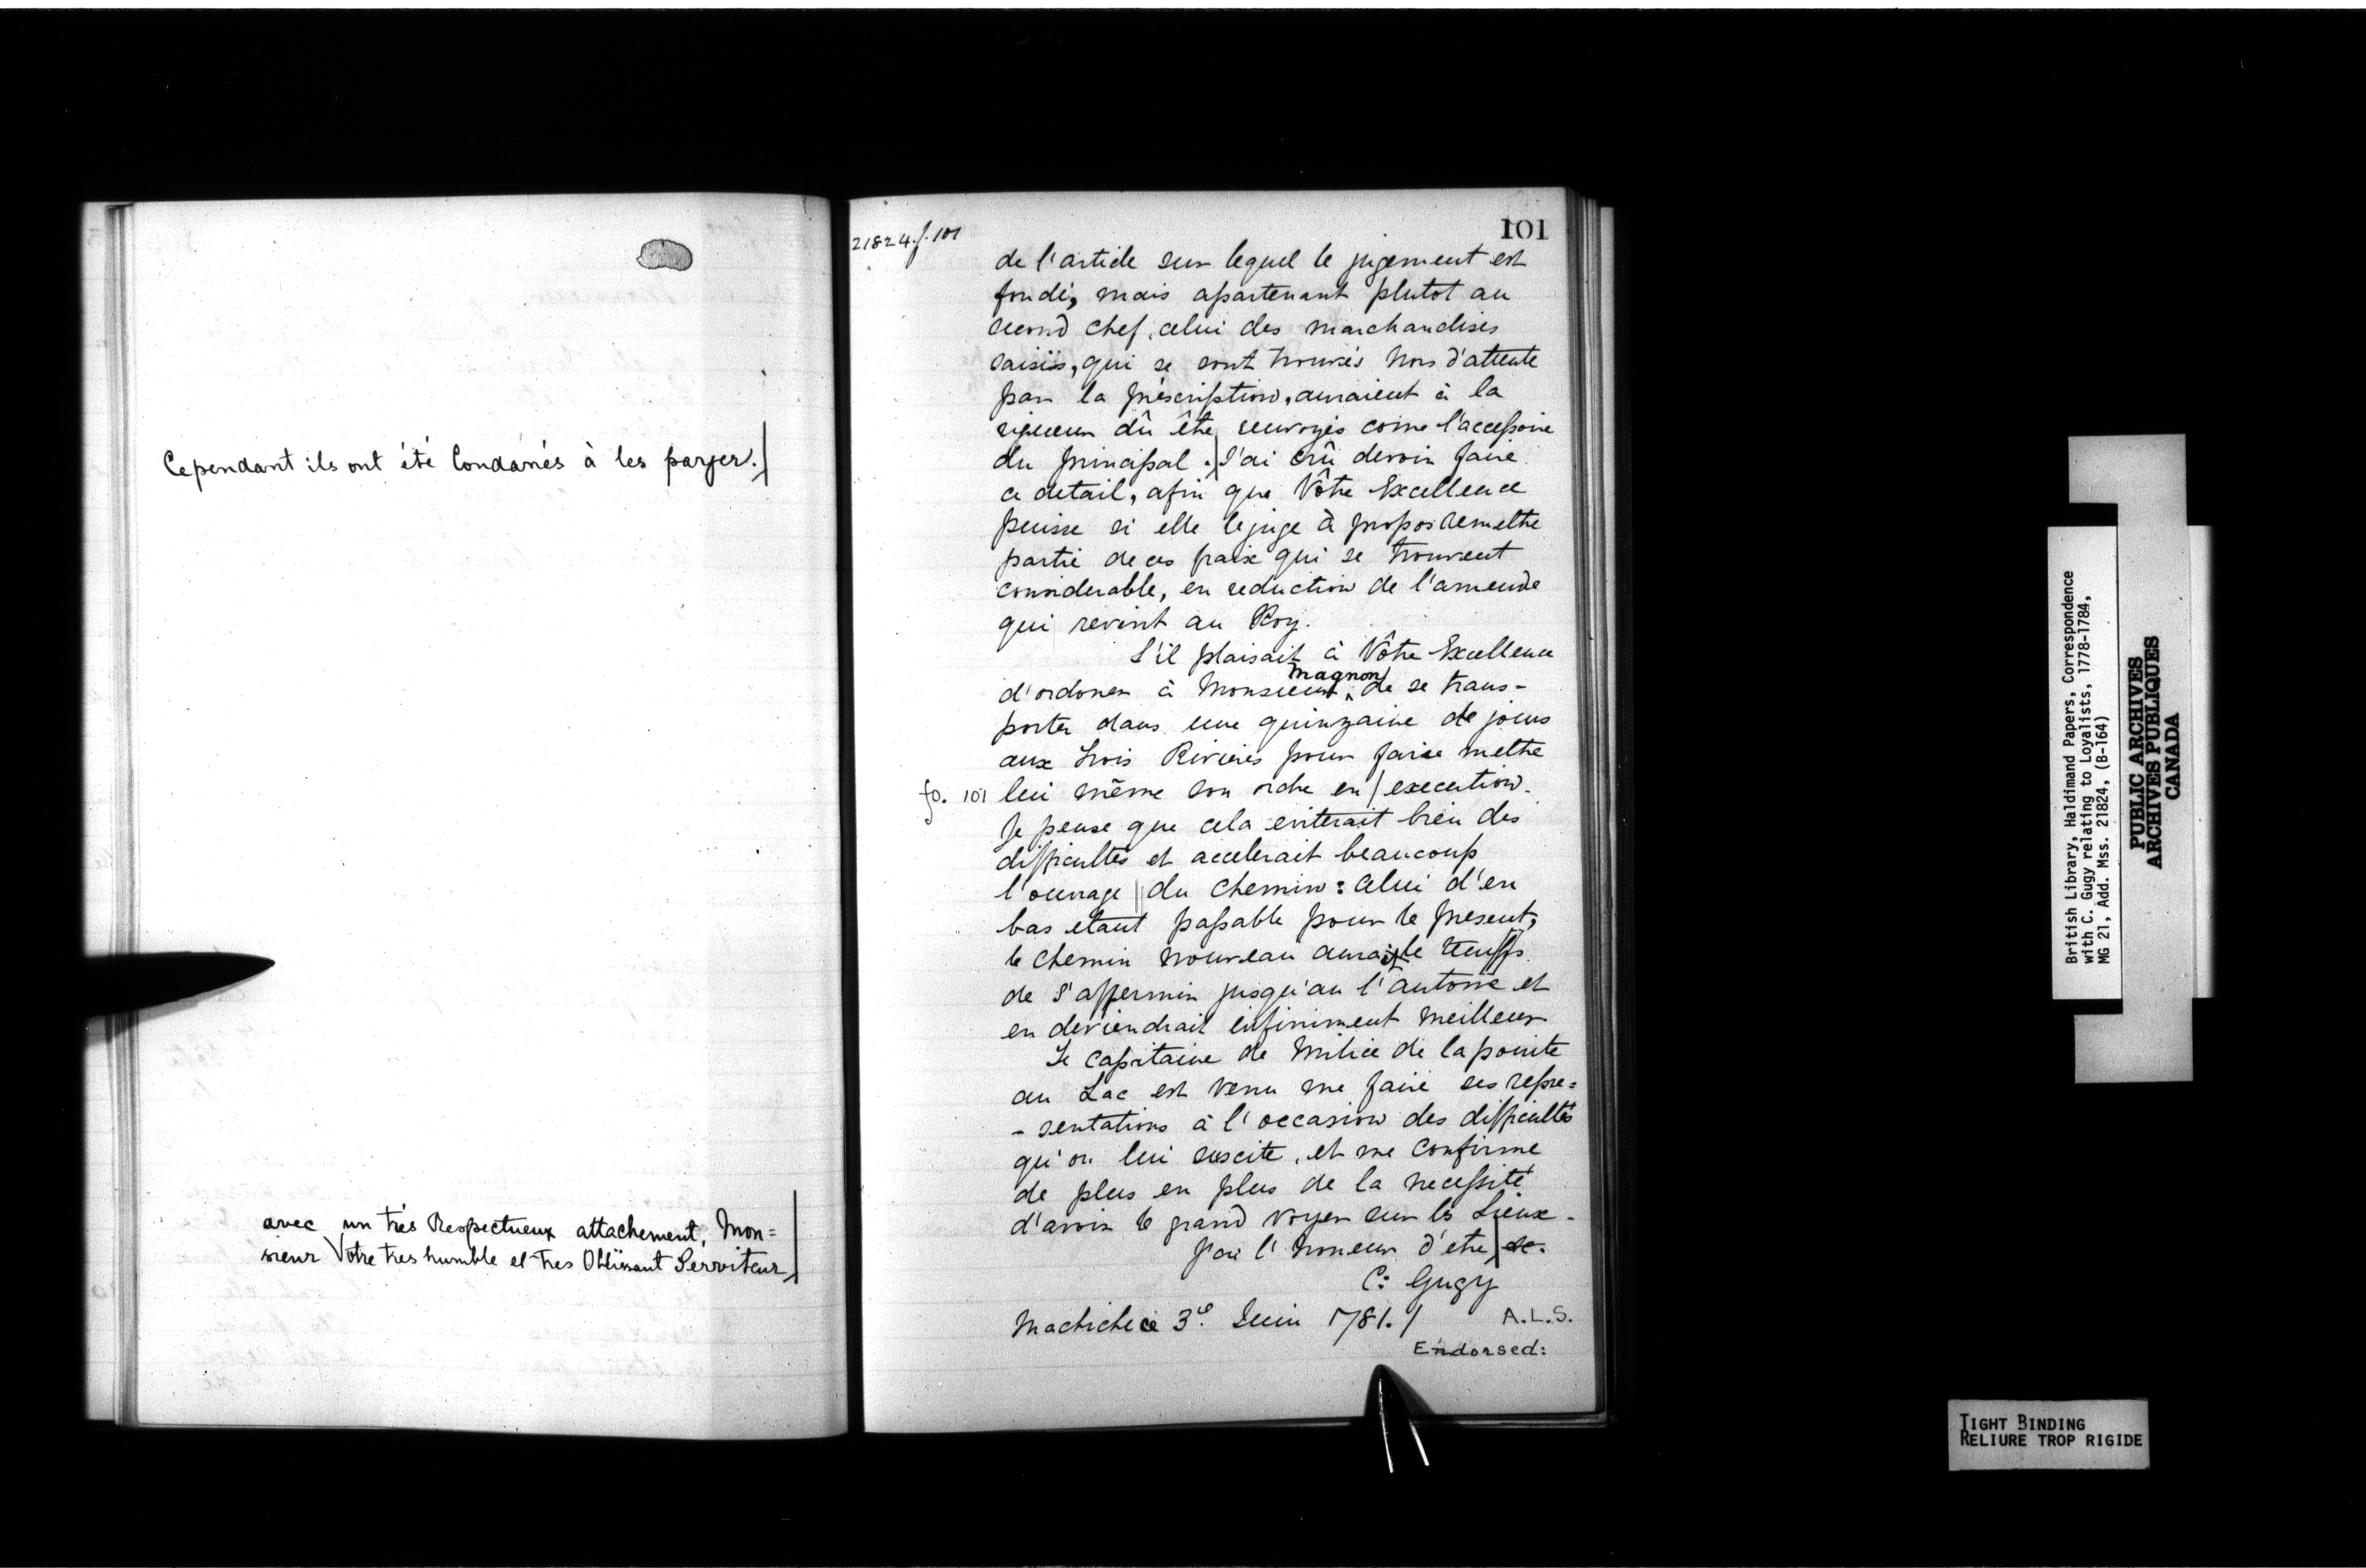 Cependant ils ont été Condanés à les payer.
avec un trés Respectueux attachement, Mon=
sieur Votre tres humble et tres Obéissant Serviteur
21824. f. 101
101
de l'article sur lequel le jugement est
fondé, mais apartenant plutot au
second chef, celui des marchandises
saisiis, qui se sont trouvés hors d'attente
par la préscription, auraient à la
rigueur dû être renvoyés come l'accessoire
du principal. J'ai crû devoir faire
ce detail, afin que Vôtre Excellence
puisse si elle le juge à propos remettre
partie de ces fraix qui se trouvent
considerable, en reduction de l'amende
qui revint au Roy.
S'il plaisait à Vôtre Excellence
d'ordoner à Monsieur Magnon de se trans-
porter dans une quinzaine de jours
aux trois Rivieres pour faire mettre
fo. 101 lui même son ordre en / execution.
Je pense que cela eviterait bien des
difficultés et accelerait beaucoup
l'ouvrage du chemin : celui d'en
bas etant passable pour le present,
le chemin nouveau aurait le tems
de s'affermir jusqu'au l'autone et
en deviendrait infiniment meilleur
Le capitaine de Milice de la pointe
au Lac est venu me faire ses repre=
- sentations à l'occasion des difficultés
qu'on lui suscite, et me confirme
de plus en plus de la necessité
d'avoir le grand voyer sur les Lieux.
J'ai l'honeur d'etre &c.
C: Gugy
Machiche ce 3e. Juin 1781. /
A.L.S.
Endorsed:
British Library, Haldimand Papers, Correspondence
with C. Gugy relating to Loyalists, 1778-1784,
MG 21, Add. Mss. 21824, (B-164)
PUBLIC ARCHIVES
ARCHIVES PUBLIQUES
CANADA
TIGHT BINDING
RELIURE TROP RIGIDE